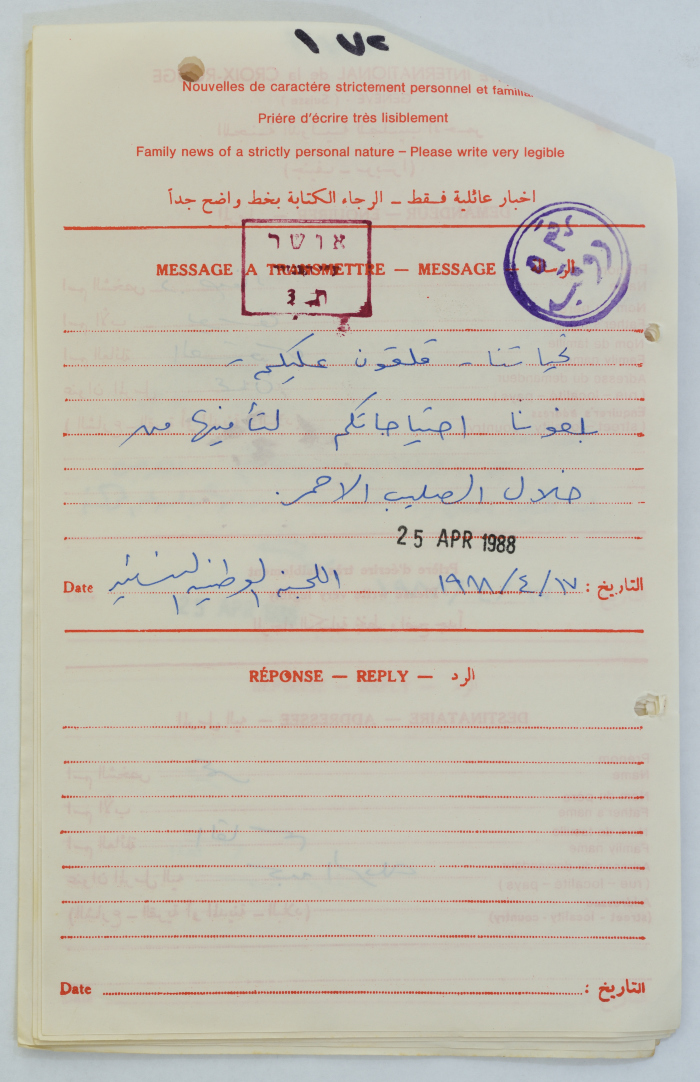 ١٧٢
Nouvelles de caractére strictement personnel et familia
Priére d'écrire très lisiblement
Family news of a strictly personal nature – Please write very legible
اخبار عائلية فـقـط ــ الرجاء الكتابة بخط واضح جداً
אושר
MESSAGE A TRANSMETTRE — MESSAGE — الرسالة
تحياتنا - قلقون عليكم -
بلغونا احتياجاتكم لتأمينها من
خلال الصليب الاحمر.
25 APR 1988
Date اللجنة الوطنية النسائية ١٩٨٨/٤/١٧ التاريخ :
RÉPONSE — REPLY — الرد
Date التاريخ :